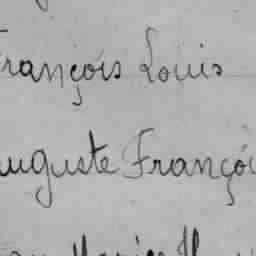 François Louis
Auguste Françoi